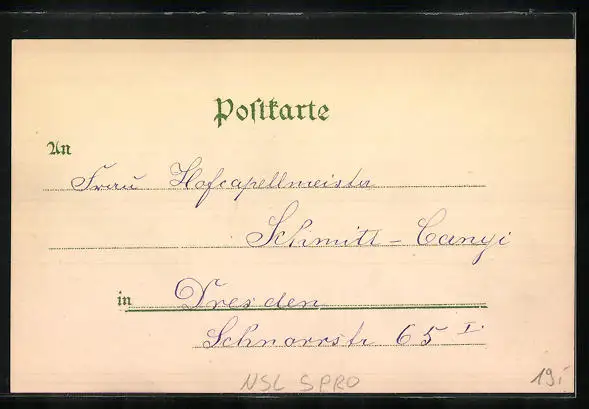 Postkarte
An
Frau Hofcapellmeister
Schmitt-Canyi
in Dresden
Schnorrstr 65 I.
NSL SPRO
19,-